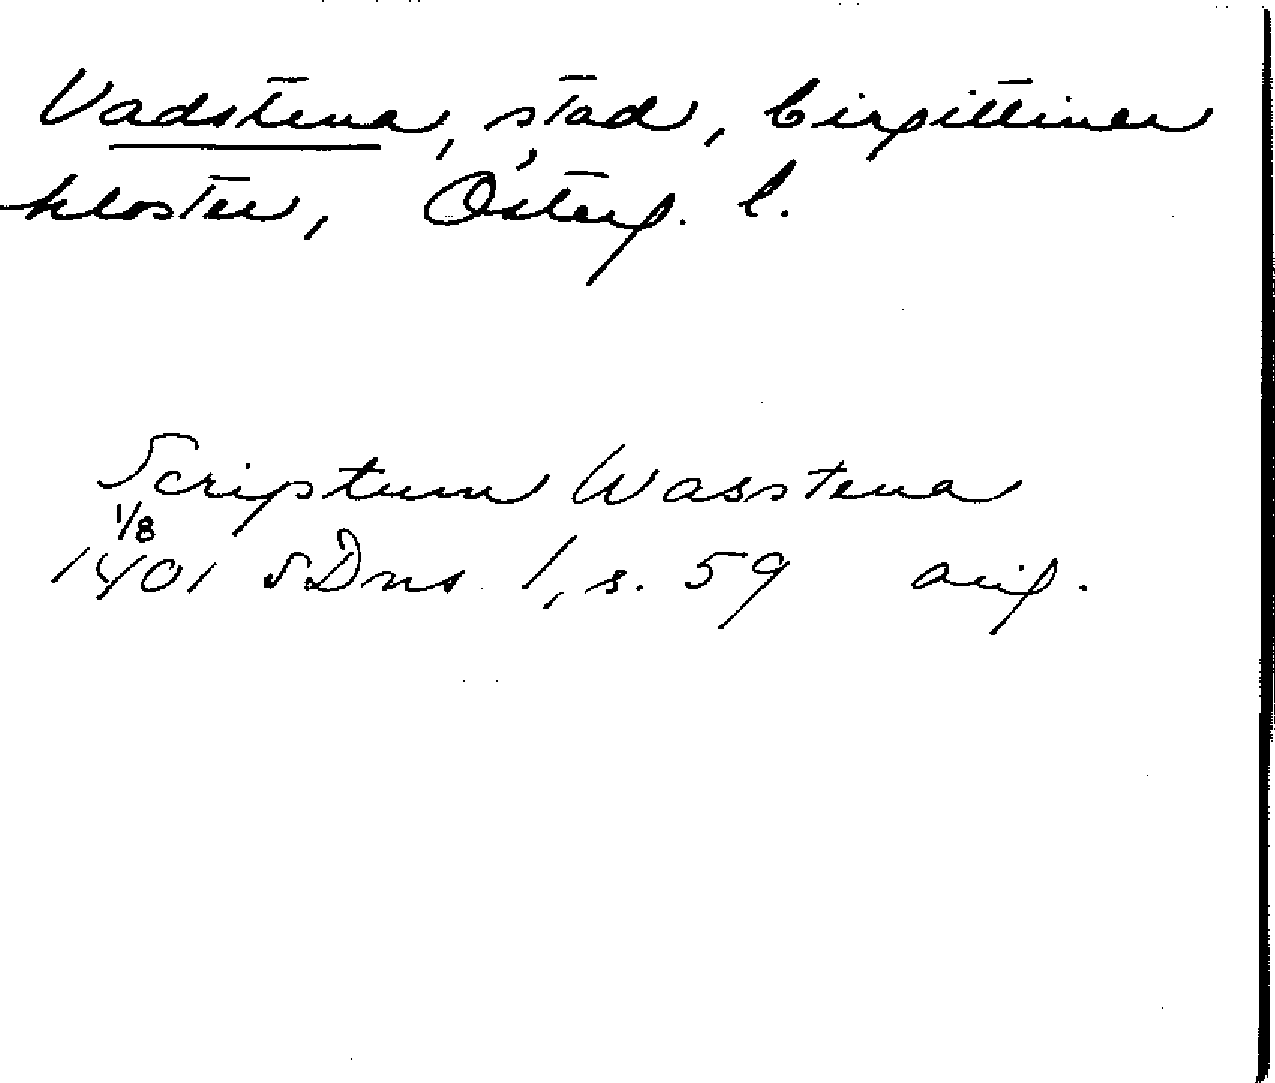 Vadstena, stad, birgittiner
kloster, Österg. l.
Scriptum Wasstena
1/8
1401 SDns 1, s. 59 orig.